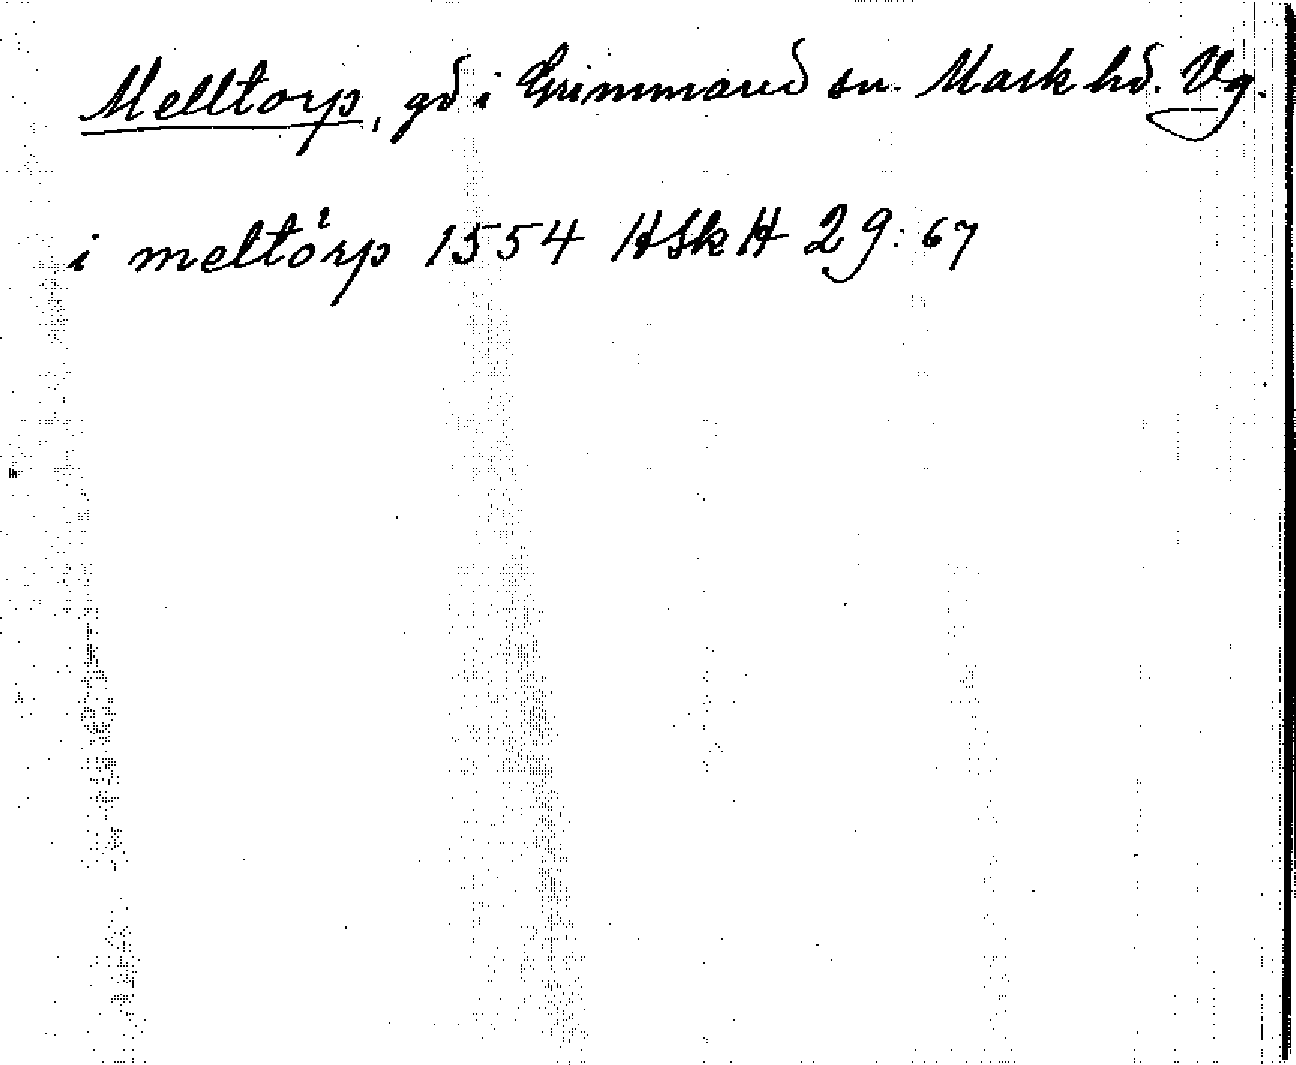 Melltorp, gd i Grimmared sn. Mark hd. Vg.
i meltörp 1554 HSkH 29:67